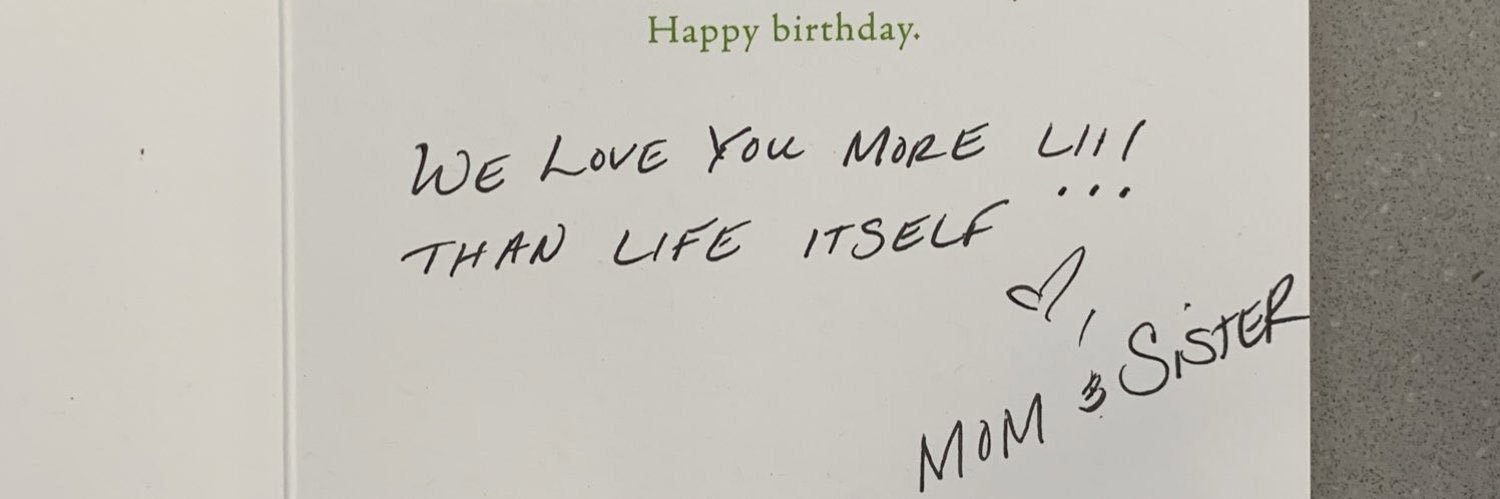 Happy birthday.
WE LOVE YOU MORE LIl!
THAN LIFE ITSELF...
♡,
MOM & SISTER